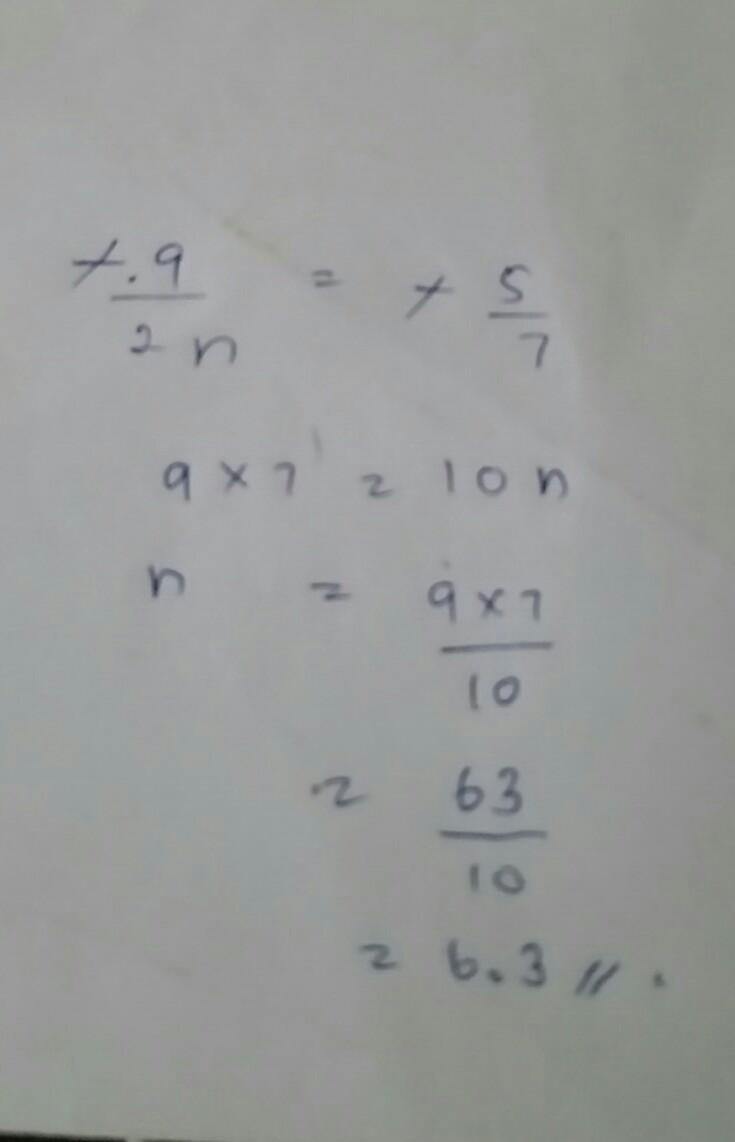 -9/2n = -5/7
9 × 7 = 10 n
n = 9 × 7/10
= 63/10
= 6.3 //.